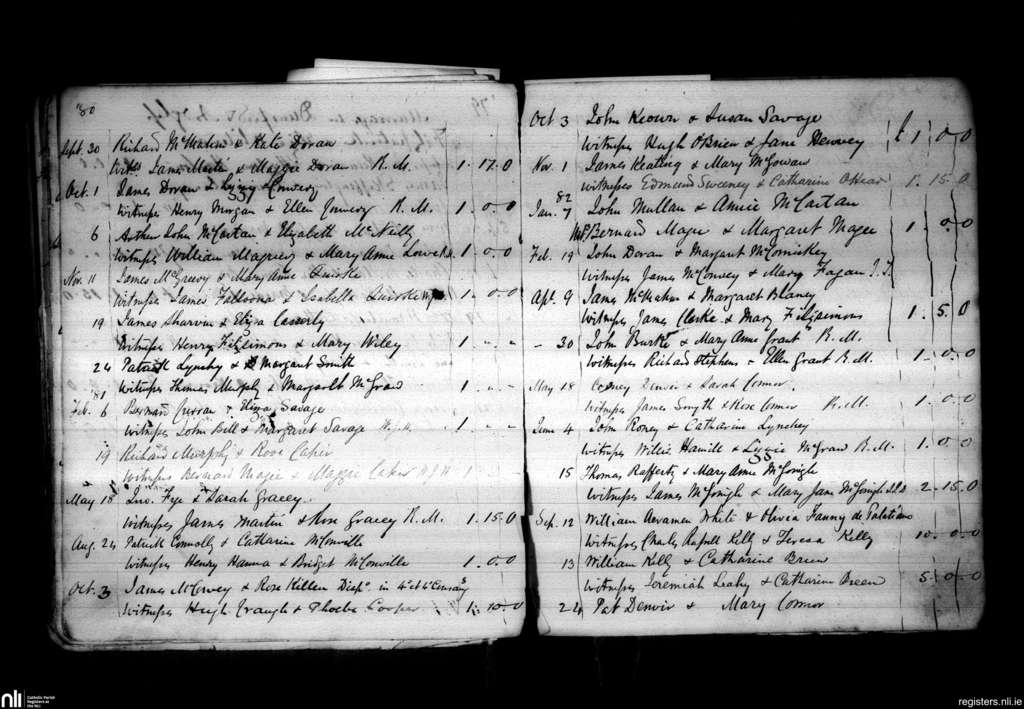 '80
Sept. 30 Richard McMahon & Kate Doran
Wits James Martin & Maggie Doran R. M. 1. 17. 0
Oct. 1 James Doran & Lizzy Convery
Witnesses Henry Morgan & Ellen R. M. 1. 0. 0
6 Arthur John McCartan & Elizabeth McNeilly
Witnesses William & Mary Anne 1. 0. 0
Nov. 11 James McGreevy & Mary Anne Quirke
Witnesses James & Isabella Quirke 1. 0. 0
19 James Sharvin & Eliza Casserly
Witnesses Henry Fitzsimons & Mary Wiley 1. - -
24 Patrick Lynchy & Margaret Smith
Witnesses Thomas Murphy & Margaret McGrad 1. - -
'81
Feb. 6 Bernard Curran & Eliza Savage
Witnesses John Bell & Margaret Savage 1. - -
19 Richard Murphy & Rose
Witnesses Bernard Magee & Maggie
May 18 Jno. Fye & Sarah Gracey
Witnesses James Martin & Rose Gracey R. M. 1. 15. 0
Aug. 24 Patrick Connolly & Catharine McConville
Witnesses Henry Hanna & Bridget McConville 1. 0. 0
Oct. 3 James McConvey & Rose Killen Disp. in
Witnesses Hugh & Phoebe Cooper 1. 10. 0
'79
Oct 3 John Keown & Susan Savage
Witnesses Hugh O'Brien & Jane Henvey £ 1. 0. 0
Nov. 1 James Keating & Mary McGowan
Witnesses Edmund Sweeney & Catharine O'Hear 1. 15. 0
82
Jan. 7 John Mullan & Annie McCartan
Bernard Magee & Margaret Magee 1. 0. 0
Feb. 19 John Doran & Margaret McComiskey
Witnesses James McConvey & Mary Fagan
Apl. 9 James McMahon & Margaret Blaney
Witnesses James Clarke & Mary Fitzsimons 1. 5. 0
- 30 John Burke & Mary Anne Grant R. M.
Witnesses Richard Stephens - Ellen Grant R. M. 1. 0. 0
May 18 Denvir & Sarah Connor
Witnesses James Smyth & Rose Connor R. M. 1. 0. 0
June 4 John Roney & Catharine Lynchey
Witnesses Hamill & Lizzie McGrady R. M. 1. 0. 0
15 Thomas Rafferty & Mary Anne McGonigle
Witnesses James McGonigle & Mary Jane McGonigle 2. 15. 0
Sep. 12 William White & Olivia Fanny de
Witnesses Charles Russell Kelly & Teresa Kelly 10. 0. 0
13 William Kelly & Catharine Breen
Witnesses Jeremiah Leahy & Catharine Breen 5. 0. 0
24 Pat Denvir & Mary Connor
nli
Catholic Parish
Registers at
the NLI
registers.nli.ie